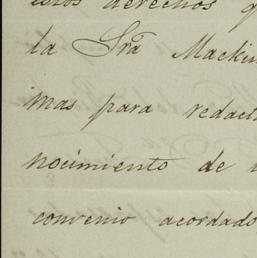 estos derechos q
la Sra Mackin
mas para redact
nocimiento de
convenio acordado